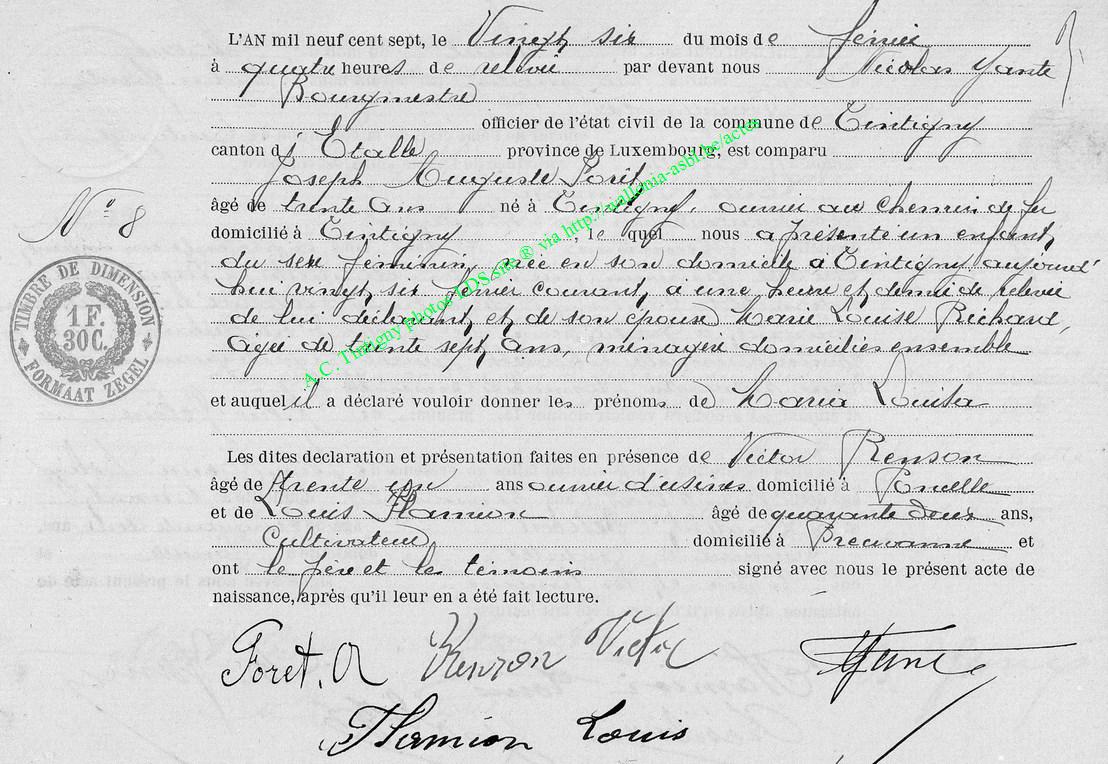 L'AN mil neuf cent sept, le Vingt six du mois de février
à quatre heures de relevée par devant nous Nicolas Yante
Bourgmestre
officier de l'état civil de la commune de Tintigny
canton d'Etalle province de Luxembourg, est comparu
Joseph Auguste Foret
âgé de trente ans né à Tintigny, ouvrier au chemin de fer
domicilié à Tintigny, le quel nous a présenté un enfant
du sexe féminin, née en son domicile à Tintigny aujourd'
hui vingt six février courant, à une heure et demie de relevée
de lui déclarant et de son épouse Marie Louise Richard,
âgée de trente sept ans, ménagère domiciliés ensemble
et auquel il a déclaré vouloir donner les prénoms de Maria Louisa
Les dites declaration et présentation faites en présence de Victor Renson
âgé de trente un ans ouvrier d'usines domicilié à Poncelle
et de Louis Hamion âgé de quarante deux ans,
Cultivateur domicilié à Breuvanne et
ont le père et les témoins signé avec nous le présent acte de
naissance, après qu'il leur en a été fait lecture.
N° 8
TIMBRE DE DIMENSION
1 F.
30 C.
FORMAAT ZEGEL
A.C. Tintigny photos LDS site ® via http://wallonia-asbl.be/actes
Foret. A Renson Victor Yante
Hamion Louis